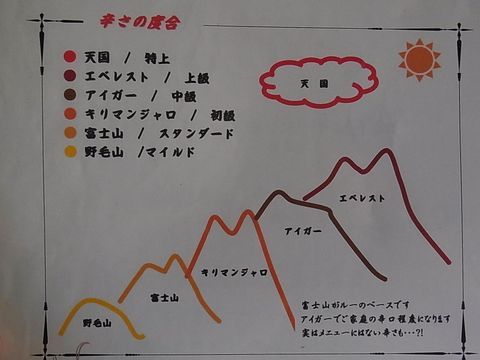 辛さの度合
天国 / 特上
エベレスト / 上級
アイガー / 中級
キリマンジャロ / 初級
富士山 / スタンダード
野毛山 /マイルド
天国
エベレスト
アイガー
キリマンジャロ
富士山
野毛山
富士山がルーのベースです
アイガーでご家庭の辛口程度になります
実はメニューにはない辛さも・・・?!